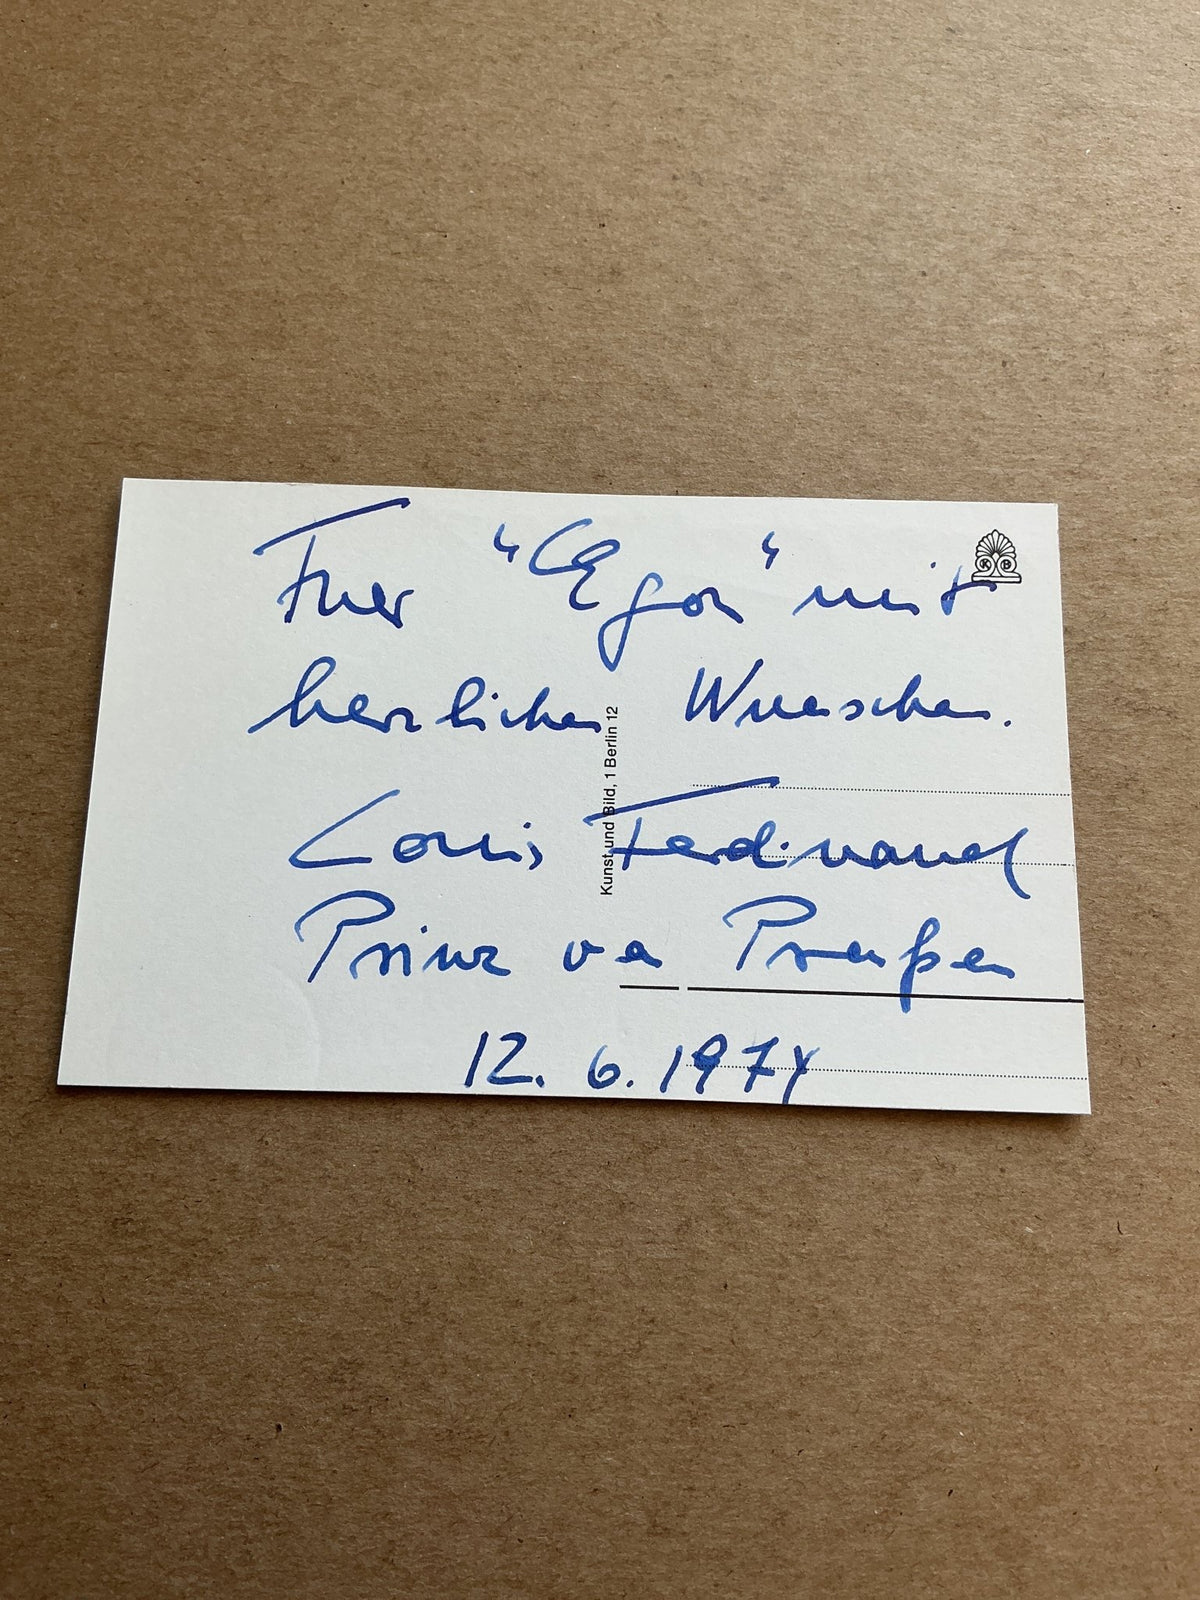 Fuer "Egon" mit
herzlichen Wuenschen.
Louis Ferdinand
Prinz von Preußen
12. 6. 1974
Kunst und Bild, 1 Berlin 12
K B